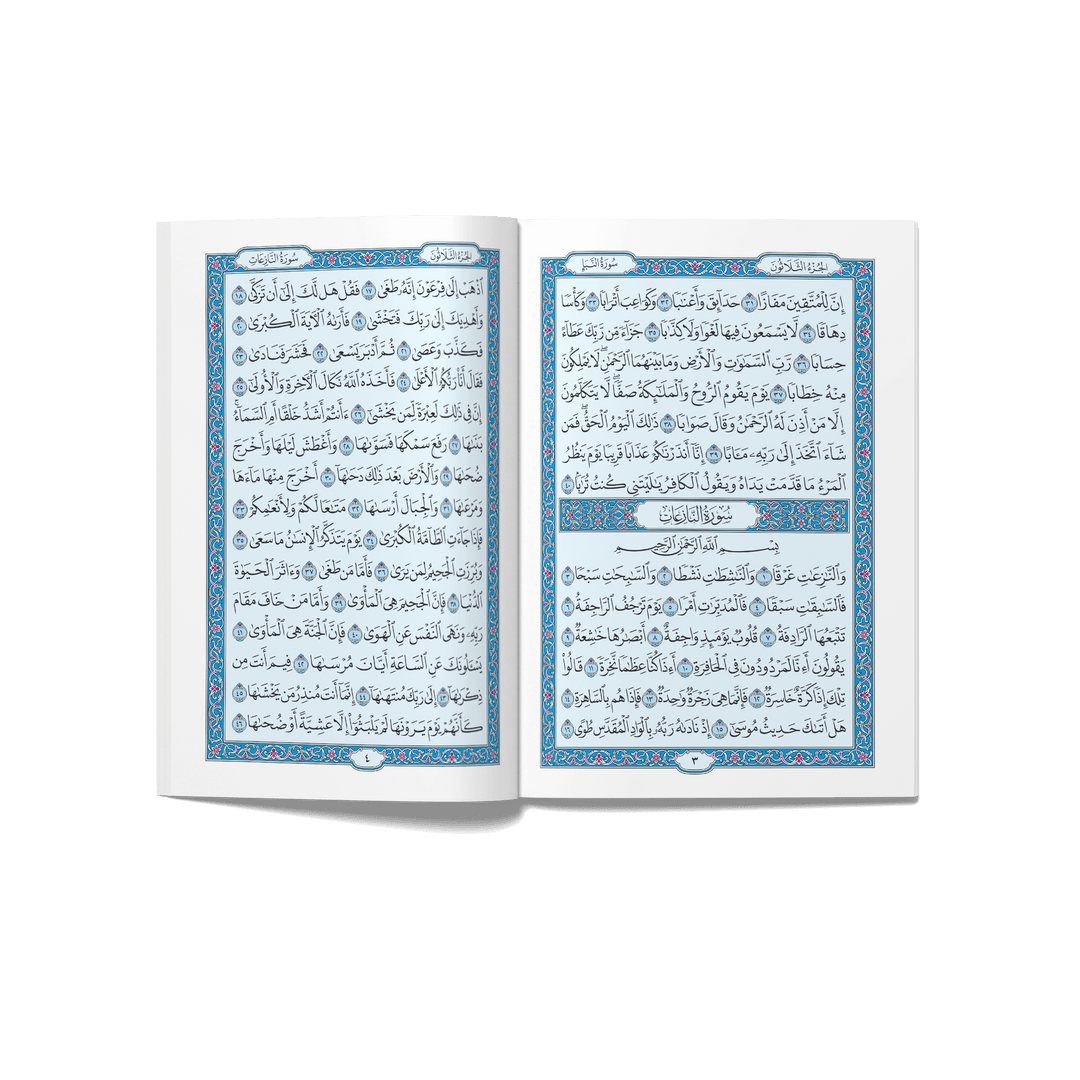 سُورَةُ النَّبَإِ الجُزْءُ الثَّلَاثُونَ
إِنَّ لِلْمُتَّقِينَ مَفَازًا ٣١ حَدَآئِقَ وَأَعْنَٰبًا ٣٢ وَكَوَاعِبَ أَتْرَابًا ٣٣ وَكَأْسًا
دِهَاقًا ٣٤ لَّا يَسْمَعُونَ فِيهَا لَغْوًا وَلَا كِذَّٰبًا ٣٥ جَزَآءً مِّن رَّبِّكَ عَطَآءً
حِسَابًا ٣٦ رَّبِّ ٱلسَّمَٰوَٰتِ وَٱلْأَرْضِ وَمَا بَيْنَهُمَا ٱلرَّحْمَٰنِۖ لَا يَمْلِكُونَ
مِنْهُ خِطَابًا ٣٧ يَوْمَ يَقُومُ ٱلرُّوحُ وَٱلْمَلَٰٓئِكَةُ صَفًّاۖ لَّا يَتَكَلَّمُونَ
إِلَّا مَنْ أَذِنَ لَهُ ٱلرَّحْمَٰنُ وَقَالَ صَوَابًا ٣٨ ذَٰلِكَ ٱلْيَوْمُ ٱلْحَقُّۖ فَمَن
شَآءَ ٱتَّخَذَ إِلَىٰ رَبِّهِۦ مَـَٔابًا ٣٩ إِنَّآ أَنذَرْنَٰكُمْ عَذَابًا قَرِيبًا يَوْمَ يَنظُرُ
ٱلْمَرْءُ مَا قَدَّمَتْ يَدَاهُ وَيَقُولُ ٱلْكَافِرُ يَٰلَيْتَنِى كُنتُ تُرَٰبًۢا ٤٠
سُورَةُ النَّازِعَاتِ
بِسْمِ ٱللَّهِ ٱلرَّحْمَٰنِ ٱلرَّحِيمِ
وَٱلنَّٰزِعَٰتِ غَرْقًا ١ وَٱلنَّٰشِطَٰتِ نَشْطًا ٢ وَٱلسَّٰبِحَٰتِ سَبْحًا ٣
فَٱلسَّٰبِقَٰتِ سَبْقًا ٤ فَٱلْمُدَبِّرَٰتِ أَمْرًا ٥ يَوْمَ تَرْجُفُ ٱلرَّاجِفَةُ ٦
تَتْبَعُهَا ٱلرَّادِفَةُ ٧ قُلُوبٌ يَوْمَئِذٍ وَاجِفَةٌ ٨ أَبْصَٰرُهَا خَٰشِعَةٌ ٩
يَقُولُونَ أَءِنَّا لَمَرْدُودُونَ فِى ٱلْحَافِرَةِ ١٠ أَءِذَا كُنَّا عِظَٰمًا نَّخِرَةً ١١ قَالُوا۟
تِلْكَ إِذًا كَرَّةٌ خَاسِرَةٌ ١٢ فَإِنَّمَا هِىَ زَجْرَةٌ وَٰحِدَةٌ ١٣ فَإِذَا هُم بِٱلسَّاهِرَةِ ١٤
هَلْ أَتَىٰكَ حَدِيثُ مُوسَىٰٓ ١٥ إِذْ نَادَىٰهُ رَبُّهُۥ بِٱلْوَادِ ٱلْمُقَدَّسِ طُوًى ١٦
٣
سُورَةُ النَّازِعَاتِ الجُزْءُ الثَّلَاثُونَ
ٱذْهَبْ إِلَىٰ فِرْعَوْنَ إِنَّهُۥ طَغَىٰ ١٧ فَقُلْ هَل لَّكَ إِلَىٰٓ أَن تَزَكَّىٰ ١٨
وَأَهْدِيَكَ إِلَىٰ رَبِّكَ فَتَخْشَىٰ ١٩ فَأَرَىٰهُ ٱلْءَايَةَ ٱلْكُبْرَىٰ ٢٠
فَكَذَّبَ وَعَصَىٰ ٢١ ثُمَّ أَدْبَرَ يَسْعَىٰ ٢٢ فَحَشَرَ فَنَادَىٰ ٢٣
فَقَالَ أَنَا۠ رَبُّكُمُ ٱلْأَعْلَىٰ ٢٤ فَأَخَذَهُ ٱللَّهُ نَكَالَ ٱلْءَاخِرَةِ وَٱلْأُولَىٰٓ ٢٥
إِنَّ فِى ذَٰلِكَ لَعِبْرَةً لِّمَن يَخْشَىٰٓ ٢٦ ءَأَنتُمْ أَشَدُّ خَلْقًا أَمِ ٱلسَّمَآءُۚ
بَنَىٰهَا ٢٧ رَفَعَ سَمْكَهَا فَسَوَّىٰهَا ٢٨ وَأَغْطَشَ لَيْلَهَا وَأَخْرَجَ
ضُحَىٰهَا ٢٩ وَٱلْأَرْضَ بَعْدَ ذَٰلِكَ دَحَىٰهَآ ٣٠ أَخْرَجَ مِنْهَا مَآءَهَا
وَمَرْعَىٰهَا ٣١ وَٱلْجِبَالَ أَرْسَىٰهَا ٣٢ مَتَٰعًا لَّكُمْ وَلِأَنْعَٰمِكُمْ ٣٣
فَإِذَا جَآءَتِ ٱلطَّآمَّةُ ٱلْكُبْرَىٰ ٣٤ يَوْمَ يَتَذَكَّرُ ٱلْإِنسَٰنُ مَا سَعَىٰ ٣٥
وَبُرِّزَتِ ٱلْجَحِيمُ لِمَن يَرَىٰ ٣٦ فَأَمَّا مَن طَغَىٰ ٣٧ وَءَاثَرَ ٱلْحَيَوٰةَ
ٱلدُّنْيَا ٣٨ فَإِنَّ ٱلْجَحِيمَ هِىَ ٱلْمَأْوَىٰ ٣٩ وَأَمَّا مَنْ خَافَ مَقَامَ
رَبِّهِۦ وَنَهَى ٱلنَّفْسَ عَنِ ٱلْهَوَىٰ ٤٠ فَإِنَّ ٱلْجَنَّةَ هِىَ ٱلْمَأْوَىٰ ٤١
يَسْـَٔلُونَكَ عَنِ ٱلسَّاعَةِ أَيَّانَ مُرْسَىٰهَا ٤٢ فِيمَ أَنتَ مِن
ذِكْرَىٰهَآ ٤٣ إِلَىٰ رَبِّكَ مُنتَهَىٰهَآ ٤٤ إِنَّمَآ أَنتَ مُنذِرُ مَن يَخْشَىٰهَا ٤٥
كَأَنَّهُمْ يَوْمَ يَرَوْنَهَا لَمْ يَلْبَثُوٓا۟ إِلَّا عَشِيَّةً أَوْ ضُحَىٰهَا ٤٦
٤